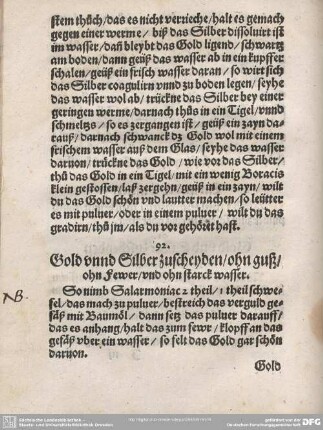 stem thůch/das es nicht verrieche/halt es gemach
gegen einer werme/ biß das Silber dissoluirt ist
im wasser/dañ bleybt das Gold ligend/schwartz
am boden/dann geüß das wasser ab in ein kupffer
schalen/geüß ein frisch wasser daran / so wirt sich
das Silber coagulirn vnnd zu boden legen/seyhe
das wasser wol ab/ trückne das Silber bey einer
geringen werme/darnach thůs in ein Tigel/vnnd
schmeltzs / so es zergangen ist / geüß ein zayn da-
rauß/darnach schwanck dz Gold wol mit einem
frischem wasser auß dem Glas/ seyhe das wasser
daruon/trückne das Gold / wie vor das Silber/
thů das Gold in ein Tigel/mit ein wenig Boracis
klein gestossen/laß zergehn/geüß in ein zayn/ wilt
du das Gold schön vnd lautter machen/so leütter
es mit puluer/oder in einem puluer / wilt du das
gradirn/thů jm/als du vor gehört hast.
92.
Gold vnnd Silber zuscheyden/ohn gußz/
ohn Fewer/vnd ohn starck wasser.
NB.
So nimb Salarmoniac 2 theil/1 theil schwe-
fel/das mach zu puluer/bestreich das verguld ge-
fäß mit Baumöl/ dann setz das puluer darauff/
das es anhang/halt das zum fewr / klopff an das
gefäß vber ein wasser / so felt das Gold gar schön
daruon.
Gold